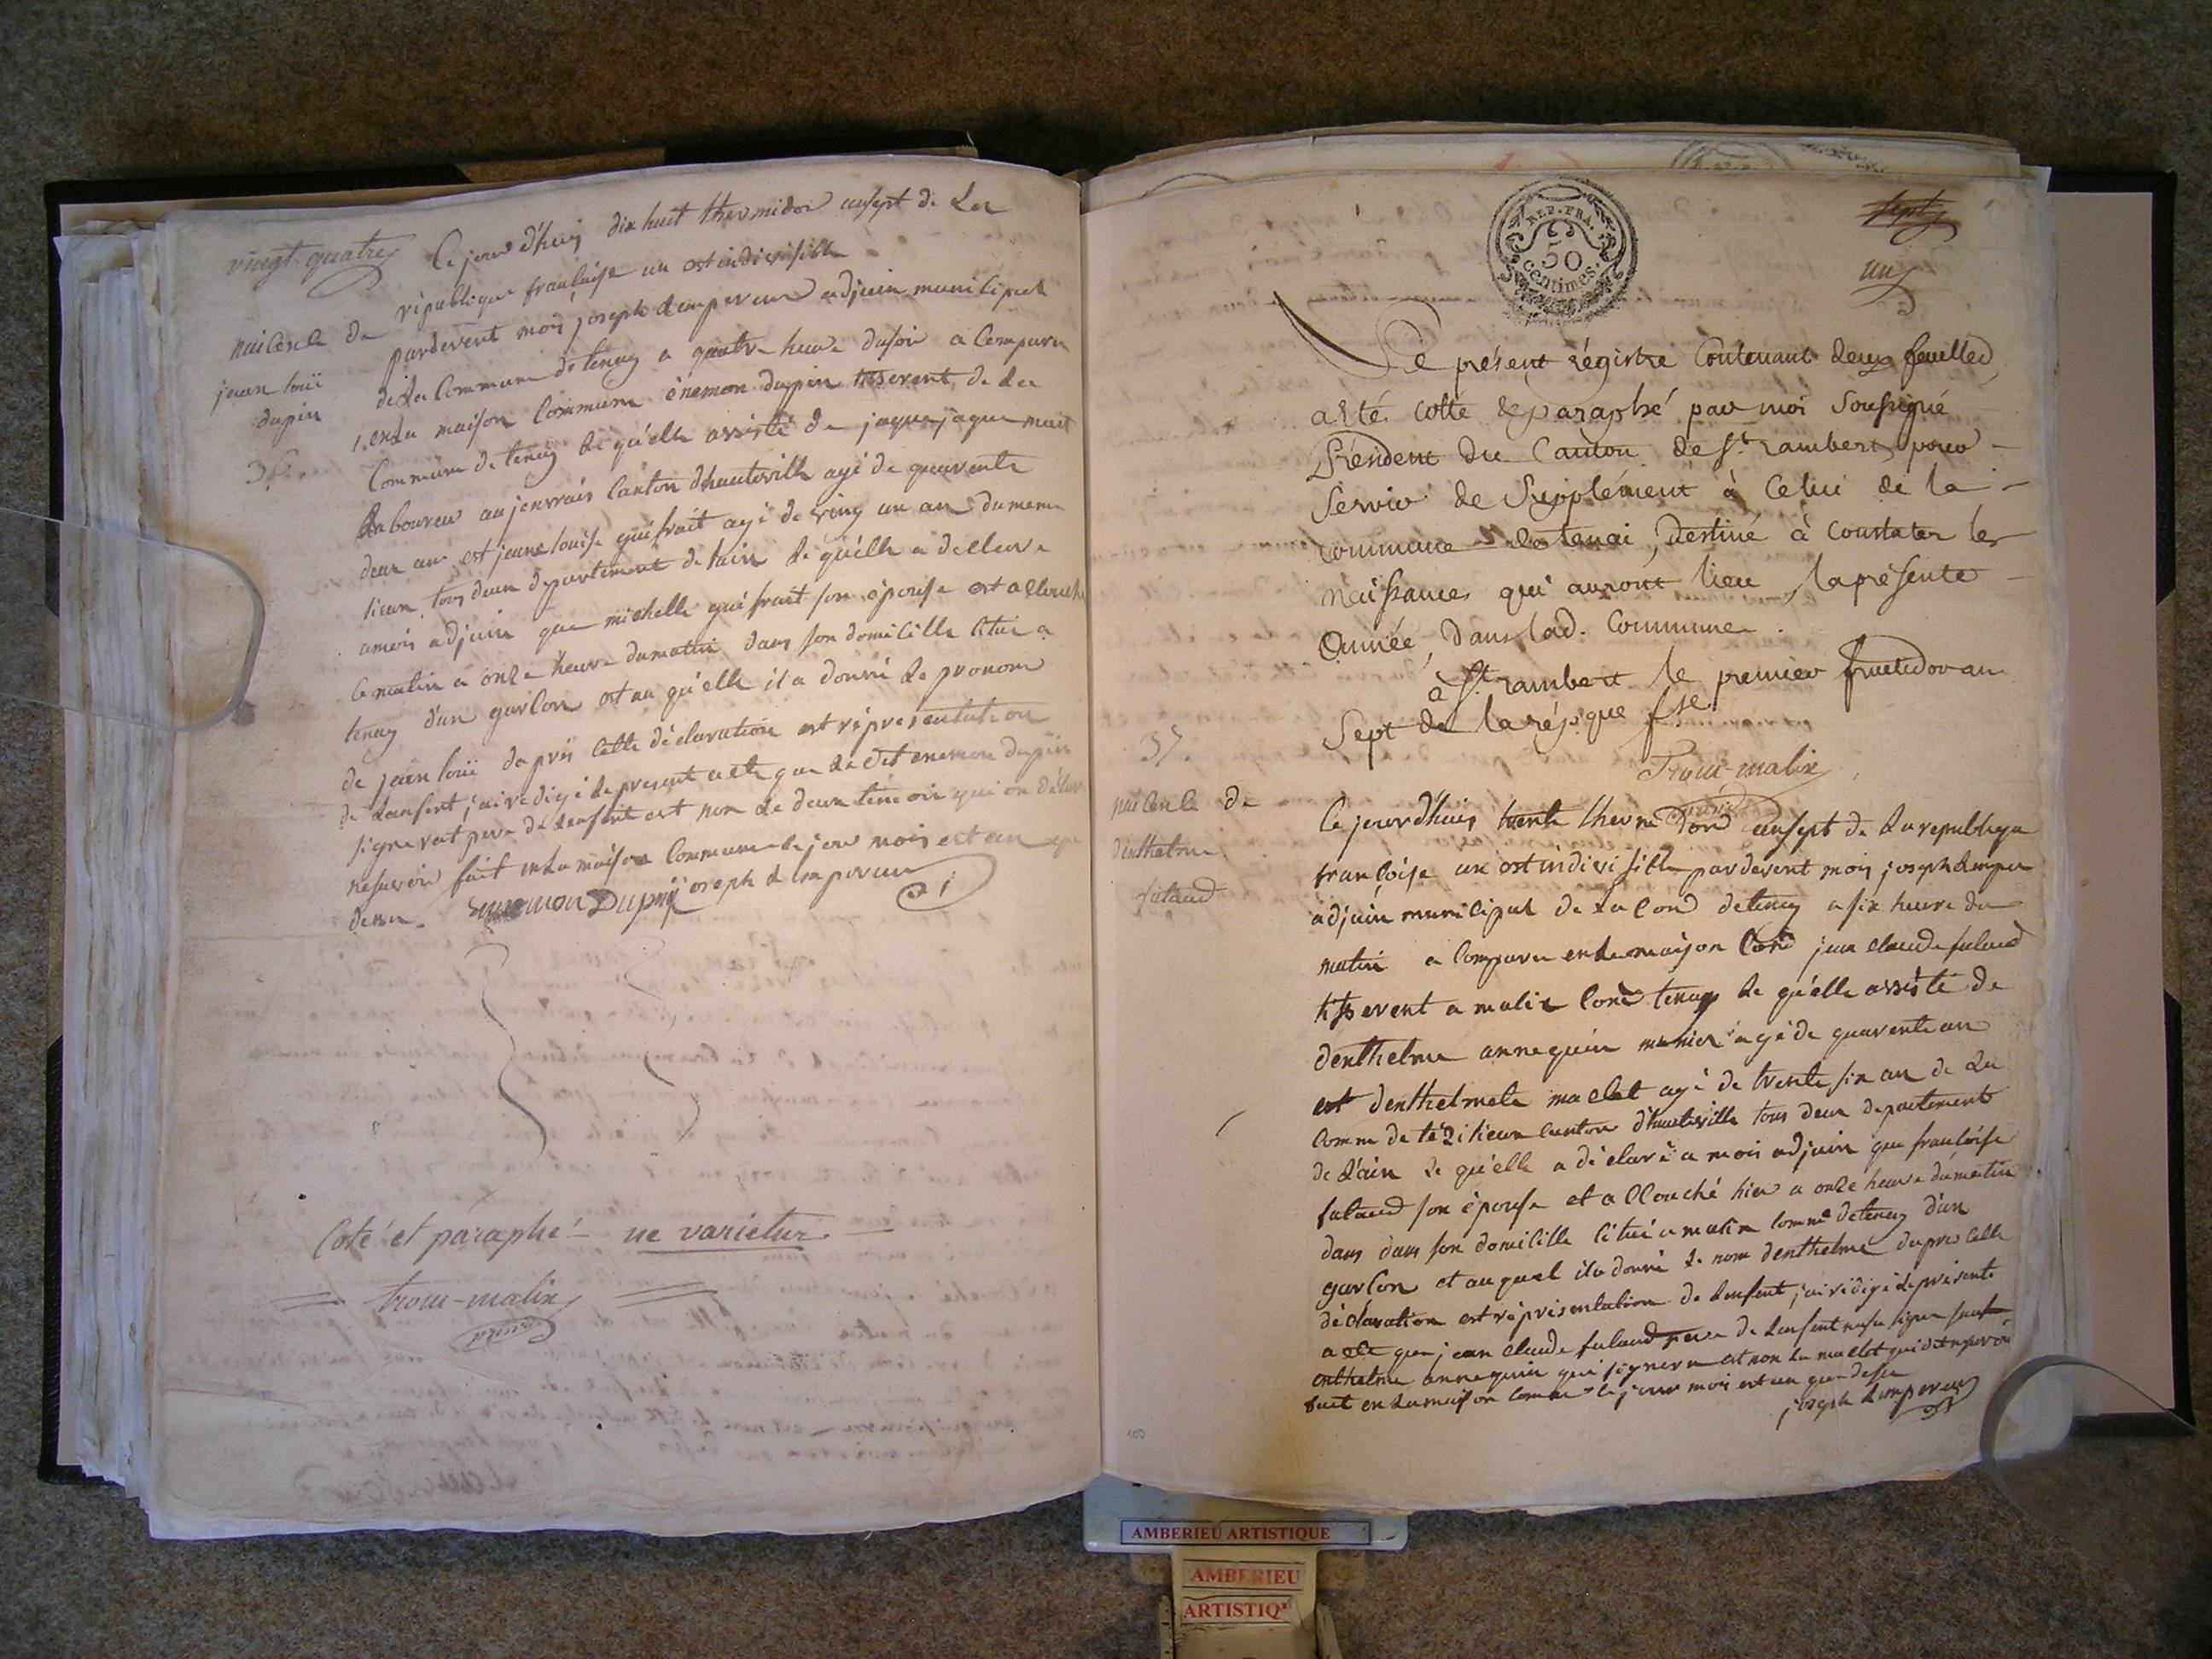 vingt quatre
Ce jour d'huij dix huit thermidor ansept de La
république franlaise un est indivisible
nailenle de
jean loui
dupin
36.
pardevent moij joseph Lempereur adjuin munilipal
de La Commune de tenay a quatre heure dusoir a Comparu
enLa maison Commune ènemon dupin tisserent de La
Commune de tenay Le qu'elle assisté de jaque jaquemait
Laboureur au jenvrais Canton d'hauteville agé de quarente
deux ans est jeanne louise guéfrait agé de ving un an du meme
lieux tous deux departement de lain Le qu'elle a dellere
amois adjuin que michelle guéfrait son épouse est allouché
Ce matin a onze heure dumatin dans son domicille situé a
tenay d'un garlon est au qu'elle il a donné Le pronom
de jean loui daprés Cette déclaration est réprésentation
de Lansent j'ai redigé Le present acte que Le dit enemon dupin
signerat pere de Lansent est non Le deux temoin qui on déclaré
nesavoir fait enLa maison Commune Le jour mois est an que
desu. Ennemon Dupin joseph Lempereur
Coté et paraphé ne varietur.
trocu-malix
REP. FRA.
50
centimes.
sept
un
Ce présent régistre Contenant deux feuilles
a été cotté & paraphé par moi Soussigné
Président du Canton de St. rambert pour
Servir de Supplément à Celui de la
commune de tenai, Destiné à Constater les
Naissances qui auront lieu la présente
Année, Dans lad. Commune.
à St. rambert le premier fructidor an
Sept de la rép.que fse.
Trocu-malix
37.
nailenle de
denthelme
falaud
Ce jourd'huij trente thermidord ansept de La republique
franloise un est indivisible pardevent moij joseph Lemper
adjuin munilipal de La Com de tenay a six heure du
matin a Comparu enLa maison Com jean claude falaud
tisserent a malix Come tenay Le qu'elle assisté de
denthelme annequin munier agé de quarente an
est denthelmete mallet agé de trente six an de La
Comm de tézilieux Canton d'hauteville tous deux departement
de L'ain Le qu'elle a déclaré a mois adjuin que franloise
falaud son épouse et allouché hier a onze heure dumatin
dans dans son domicille situé a malix Comme de tenay d'un
garlon et auquel il a donné Le nom denthelme dapre Cette
déclaration est réprésentation de Lensent j'ai redigé Le présente
acte que jean claude falaud pere de Lensent nesu signe
enthelme annequin qui signera est non La mallet qui dit nesavoir
fait enLa maison Comm Le jour mois est an que desu
joseph Lempereur
100
AMBERIEU ARTISTIQUE
AMBERIEU
ARTISTIQ